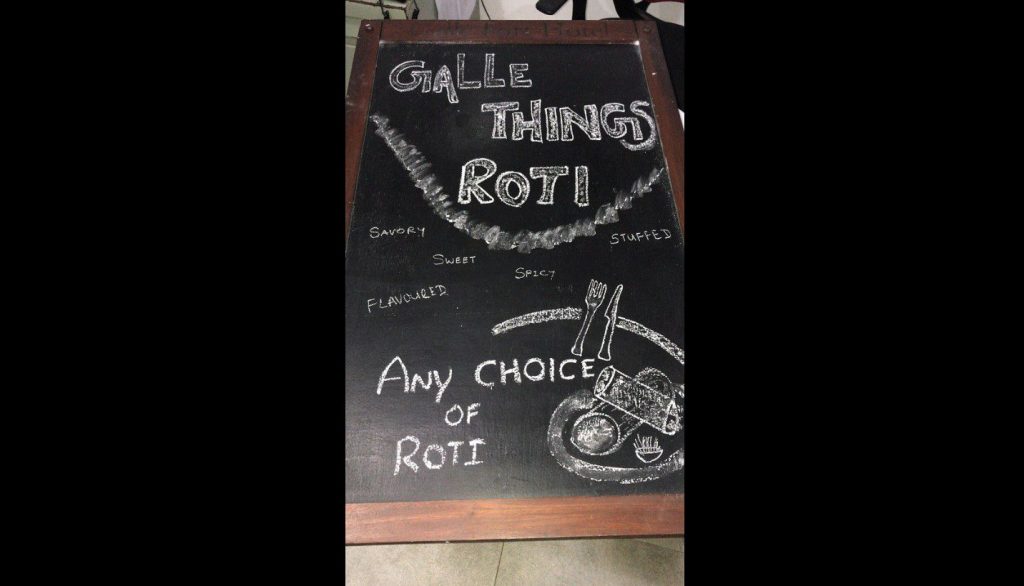 GALLE
THINGS
ROTI
SAVORY
STUFFED
SWEET
SPICY
FLAVOURED
ANY CHOICE
OF
ROTI